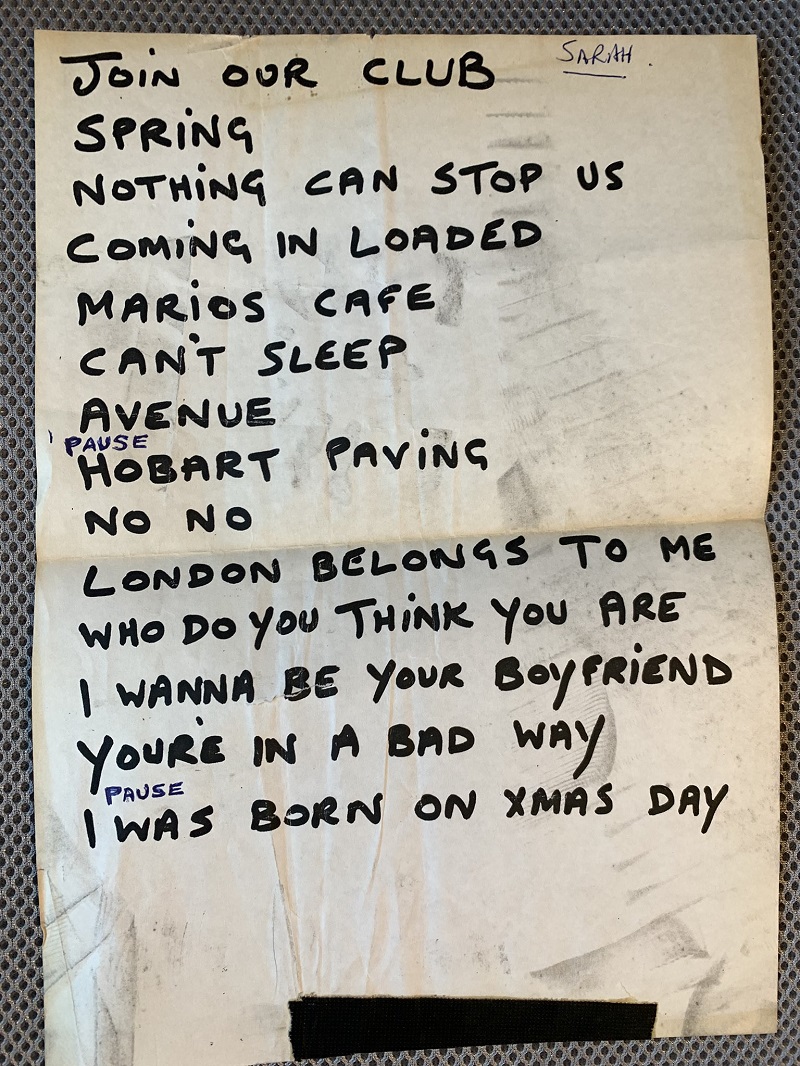 SARAH.
JOiN OUR CLUB
SPRiNG
NOTHiNG CAN STOP US
COMiNG IN LOADED
MARiOS CAFE
CAN'T SLEEP
AVENUE
PAUSE
HOBART PAViNG
NO NO
LONDON BELONGS TO ME
WHO DO YOU THiNK YOU ARE
I WANNA BE YOUR BOYFRiEND
YOU'RE IN A BAD WAY
PAUSE
I WAS BORN ON XMAS DAY